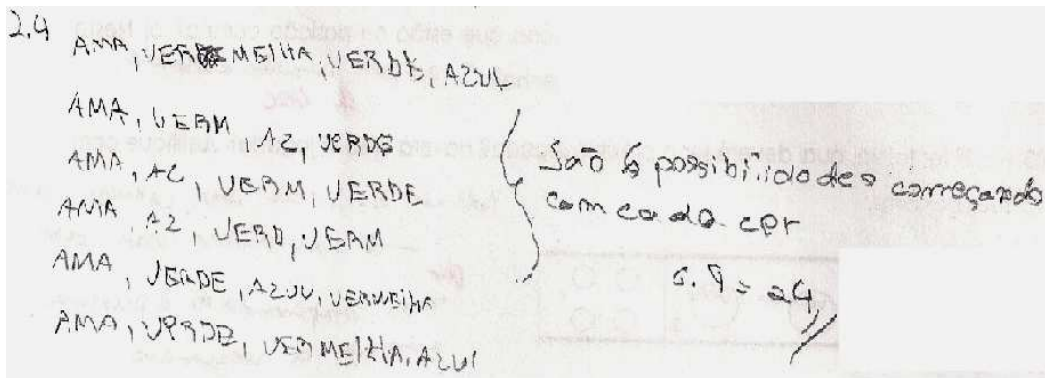 2.4
AMA, VERMELHA, VERDE, AZUL
AMA, VERM, AZ, VERDE
AMA, AZ, VERM, VERDE
AMA, AZ, VERD, VERM
AMA, VERDE, AZUL, VERMELHA
AMA, VERDE, VERMELHA, AZUL
São 6 possibilidades começando
com cada cor
6.4 = 24